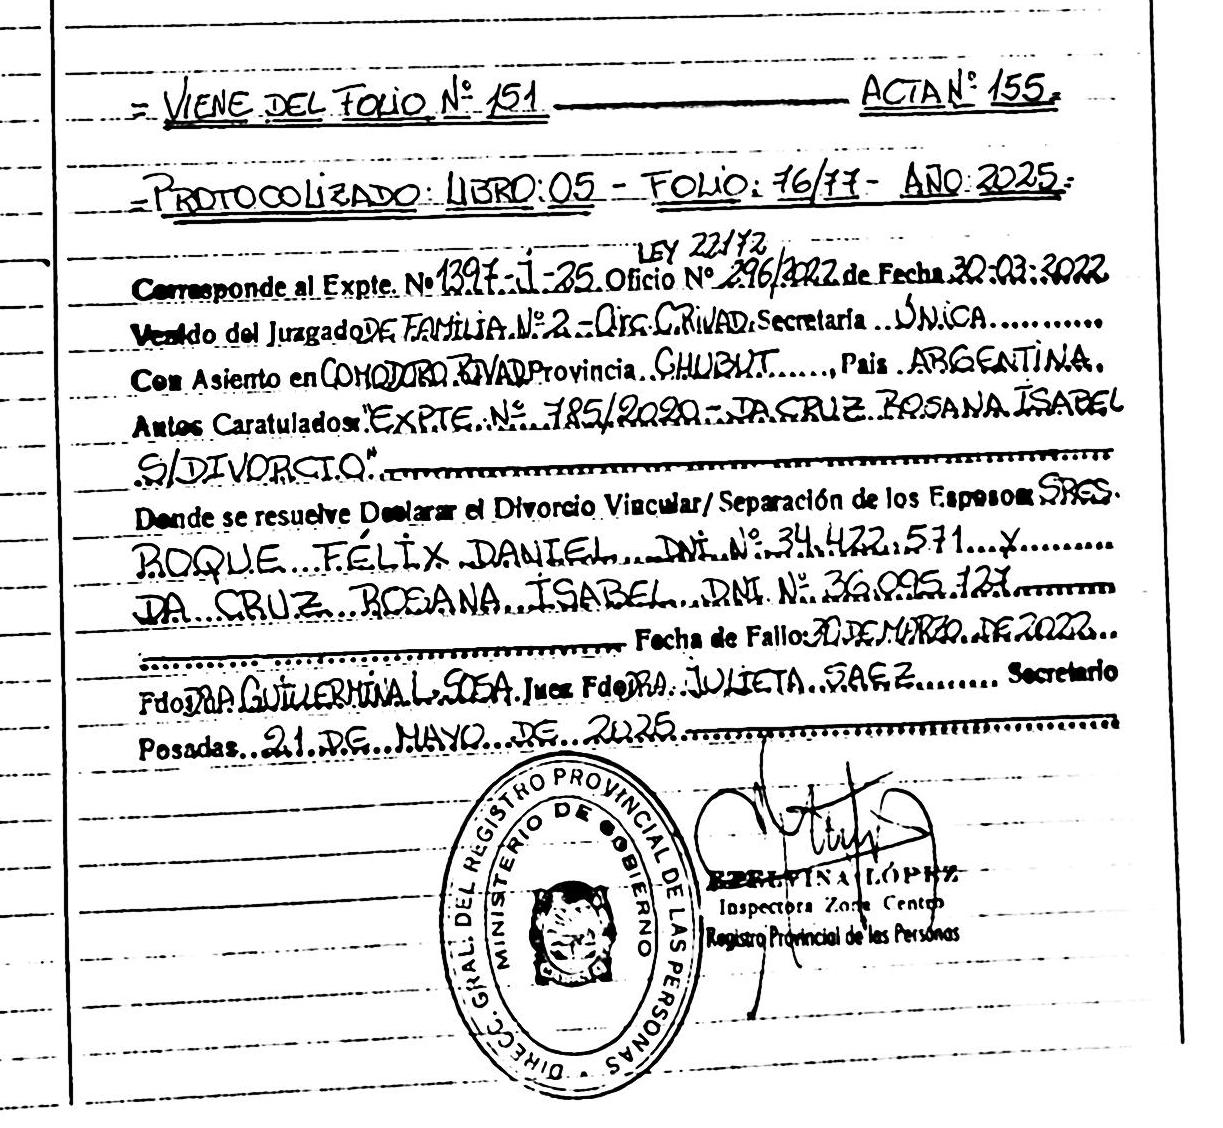 = VIENE DEL FOLIO Nº 151 ACTA Nº 155.=
=PROTOCOLIZADO: LIBRO: 05 - FOLIO: 76/77 - AÑO: 2025.=
LEY 22172
Corresponde al Expte. Nº 1397-J-25. Oficio Nº 296/2022 de Fecha 30-03-2022
Venido del Juzgado DE FAMILIA Nº 2 - Circ. C. RIVAD. Secretaría ..ÚNICA...........
Con Asiento en COMODORO RIVAD Provincia ..CHUBUT......, País .ARGENTINA.
Autos Caratulados: "EXPTE. Nº 785/2020 - DA CRUZ ROSANA ISABEL
S/DIVORCIO"
Donde se resuelve Declarar el Divorcio Vincular/ Separación de los Esposos: SRES.
ROQUE FÉLIX DANIEL DNI Nº 34.422.571...Y.........
DA CRUZ ROSANA ISABEL DNI Nº 36.095.727
Fecha de Fallo: 30 DE MARZO DE 2022...
Fdo DRA. GUILLERMINA L. SOSA. Juez Fdo DRA. JULIETA SAEZ........ Secretario
Posadas 21 DE MAYO DE 2025
DIRECC. GRAL. DEL REGISTRO PROVINCIAL DE LAS PERSONAS
MINISTERIO DE GOBIERNO
LÓPEZ
Inspectora Zona Centro
Registro Provincial de las Personas